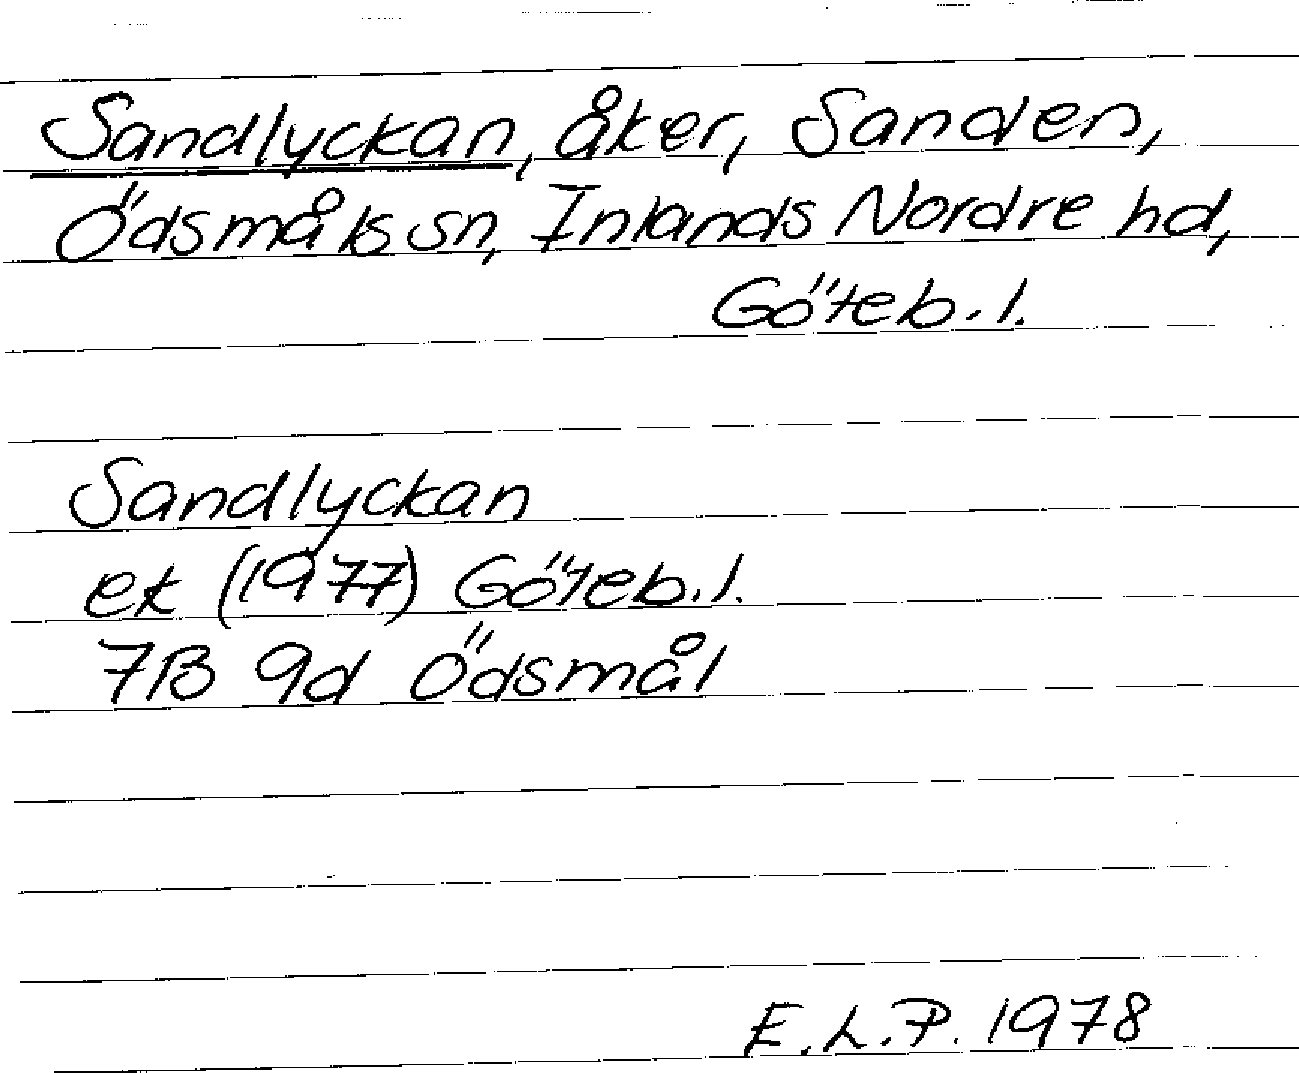 Sandlyckan, åker, Sanden,
Ödsmåls sn, Inlands Nordre hd,
Göteb. l.
Sandlyckan
ek (1977) Göteb. l.
7B 9d Ödsmål
E.L.P. 1978